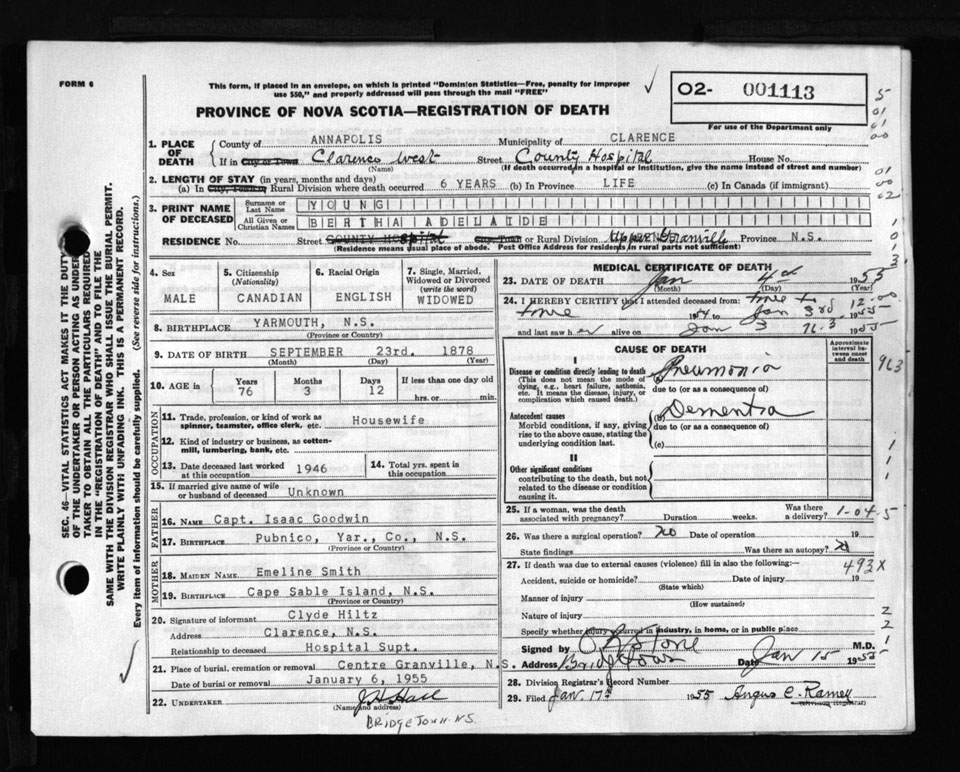 FORM 6
This form, if placed in an envelope, on which is printed "Dominion Statistics—Free, penalty for improper
use $50," and properly addressed will pass through the mail "FREE"
O2- 001113
For use of the Department only
PROVINCE OF NOVA SCOTIA—REGISTRATION OF DEATH
1. PLACE OF DEATH
County of ANNAPOLIS Municipality of CLARENCE
If in City or Town Clarence West Street County Hospital House No.
(Name) (If death occurred in a hospital or institution, give the name instead of street and number)
2. LENGTH OF STAY (in years, months and days)
(a) In City, Town or Rural Division where death occurred 6 YEARS (b) In Province LIFE (c) In Canada (if immigrant)
3. PRINT NAME OF DECEASED
Surname or Last Name YOUNG
All Given or Christian Names BERTHA ADELAIDE
RESIDENCE No. Street COUNTY Hospital City, Town or Rural Division Upper Granville Province N.S.
(Residence means usual place of abode. Post Office Address for residents in rural parts not sufficient)
4. Sex
MALE
5. Citizenship
(Nationality)
CANADIAN
6. Racial Origin
ENGLISH
7. Single, Married,
Widowed or Divorced
(write the word)
WIDOWED
8. BIRTHPLACE YARMOUTH, N.S.
(Province or Country)
9. DATE OF BIRTH SEPTEMBER 23rd. 1878
(Month) (Day) (Year)
10. AGE in
Years Months Days If less than one day old
76 3 12 hrs. or min.
OCCUPATION
11. Trade, profession or kind of work as
spinner, teamster, office clerk, etc. Housewife
12. Kind of industry or business, as cotton-
mill, lumbering, bank, etc.
13. Date deceased last worked
at this occupation 1946
14. Total yrs. spent in
this occupation
15. If married give name of wife
or husband of deceased Unknown
FATHER
16. NAME Capt. Isaac Goodwin
17. BIRTHPLACE Pubnico, Yar., Co., N.S.
(Province or Country)
MOTHER
18. MAIDEN NAME Emeline Smith
19. BIRTHPLACE Cape Sable Island, N.S.
(Province or Country)
20. Signature of informant Clyde Hiltz
Address Clarence, N.S.
Relationship to deceased Hospital Supt.
21. Place of burial, cremation or removal Centre Granville, N.S.
Date of burial or removal January 6, 1955
22. UNDERTAKER J H Hall
(Name and address)
BRIDGETOWN N.S.
MEDICAL CERTIFICATE OF DEATH
23. DATE OF DEATH Jan 4th 1955
(Month) (Day) (Year)
24. I HEREBY CERTIFY that I attended deceased from: time to
time 19 to Jan 3rd 1955
12.00
and last saw her alive on Jan 3 1955
76.3
CAUSE OF DEATH
Approximate
interval between
onset
and death
I
Disease or condition directly leading to death
(This does not mean the mode of
dying, e.g., heart failure, asthenia,
etc. It means the disease, injury, or
complication which caused death.)
Pneumonia
due to (or as a consequence of)
Antecedent causes
Morbid conditions, if any, giving
rise to the above cause, stating the
underlying condition last.
(b) Dementia
due to (or as a consequence of)
(c)
II
Other significant conditions
contributing to the death, but not
related to the disease or condition
causing it.
25. If a woman, was the death
associated with pregnancy? Duration weeks. Was there
a delivery?
1-04-5
26. Was there a surgical operation? no Date of operation 19
State findings Was there an autopsy? no
27. If death was due to external causes (violence) fill in also the following:—
493X
Accident, suicide or homicide? Date of injury 19
(State which)
Manner of injury
(How sustained)
Nature of injury
Specify whether injury occurred in industry, in home, or in public place
Signed by M.D.
Address Bridgetown Date Jan 15 1955
28. Division Registrar's Record Number
29. Filed Jan. 17th 1955 Angus C. Ramey
(Division Registrar)
SEC. 46—VITAL STATISTICS ACT MAKES IT THE DUTY
OF THE UNDERTAKER OR PERSON ACTING AS UNDER-
TAKER TO OBTAIN ALL THE PARTICULARS REQUIRED
IN THE "REGISTRATION OF DEATH" AND TO FILE THE
SAME WITH THE DIVISION REGISTRAR WHO SHALL ISSUE THE BURIAL PERMIT.
WRITE PLAINLY WITH UNFADING INK. THIS IS A PERMANENT RECORD.
Every item of information should be carefully supplied. (See reverse side for instructions.)
5
01
01
00
01
00
02
1
0
1
3
963
1
1
1
2
2
1